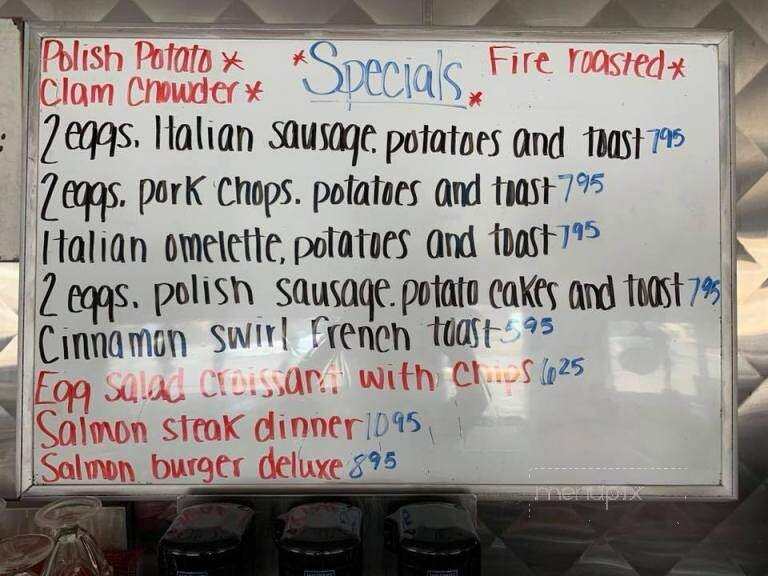 Polish Potato * * Specials * Fire roasted *
Clam Chowder *
2 eggs. Italian sausage. potatoes and toast 795
2 eggs. pork chops. potatoes and toast 795
Italian omelette, potatoes and toast 795
2 eggs. polish sausage. potato cakes and toast 795
Cinnamon swirl French toast 595
Egg salad croissant with chips 625
Salmon steak dinner 1095
Salmon burger deluxe 895
menupix